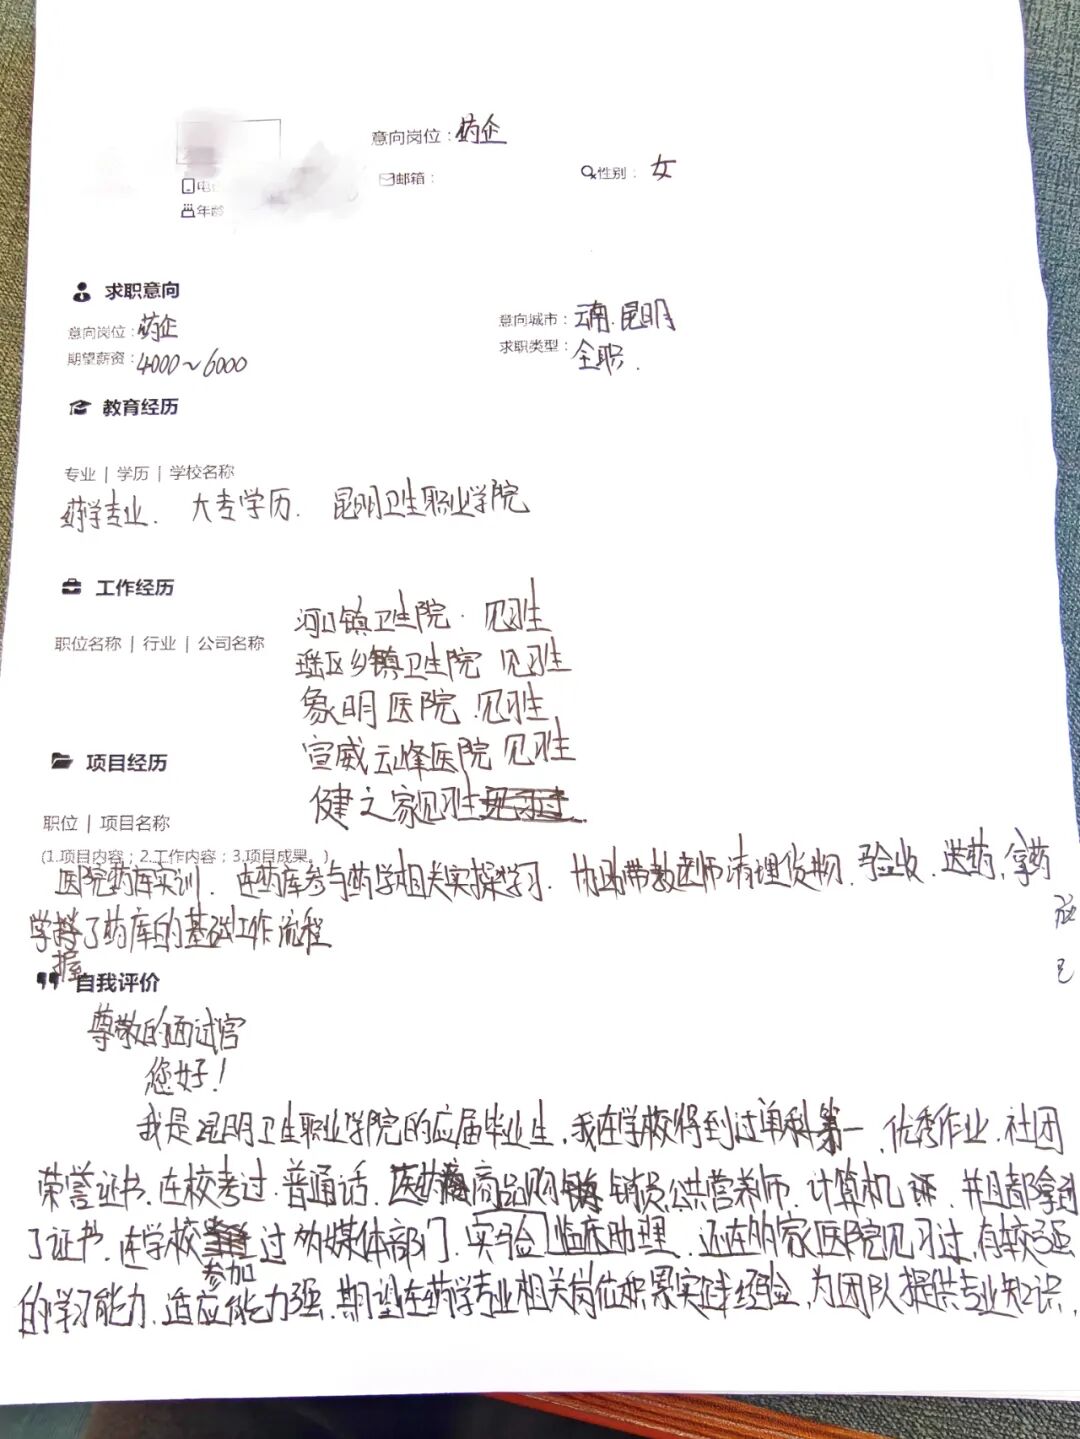 意向岗位：药企
电
邮箱：
性别：女
年龄
求职意向
意向岗位：药企
意向城市：云南.昆明
期望薪资：4000～6000
求职类型：全职.
教育经历
专业 | 学历 | 学校名称
药学专业. 大专学历. 昆明卫生职业学院
工作经历
职位名称 | 行业 | 公司名称
河口镇卫生院. 见习生
瑶区乡镇卫生院 见习生
象明医院.见习生
宣威云峰医院 见习生
健之家见习生
项目经历
职位 | 项目名称
(1.项目内容；2.工作内容；3.项目成果。)
医院药库实训. 在药库参与药学相关实操学习. 协助带教老师清理货物.验收.送药,拿药
学掌握了药库的基础工作流程
自我评价
尊敬的面试官
您好！
我是昆明卫生职业学院的应届毕业生.我在学校得到过单科第一.优秀作业.社团
荣誉证书.在校考过.普通话.医药商品购销员.公共营养师.计算机 并且都拿到
了证书.在学校参加过 媒体部门.实验临床助理.还在 家医院见习过,有较强
的学习能力.适应能力强.期望在药学专业相关岗位积累实践经验,为团队提供专业知识,